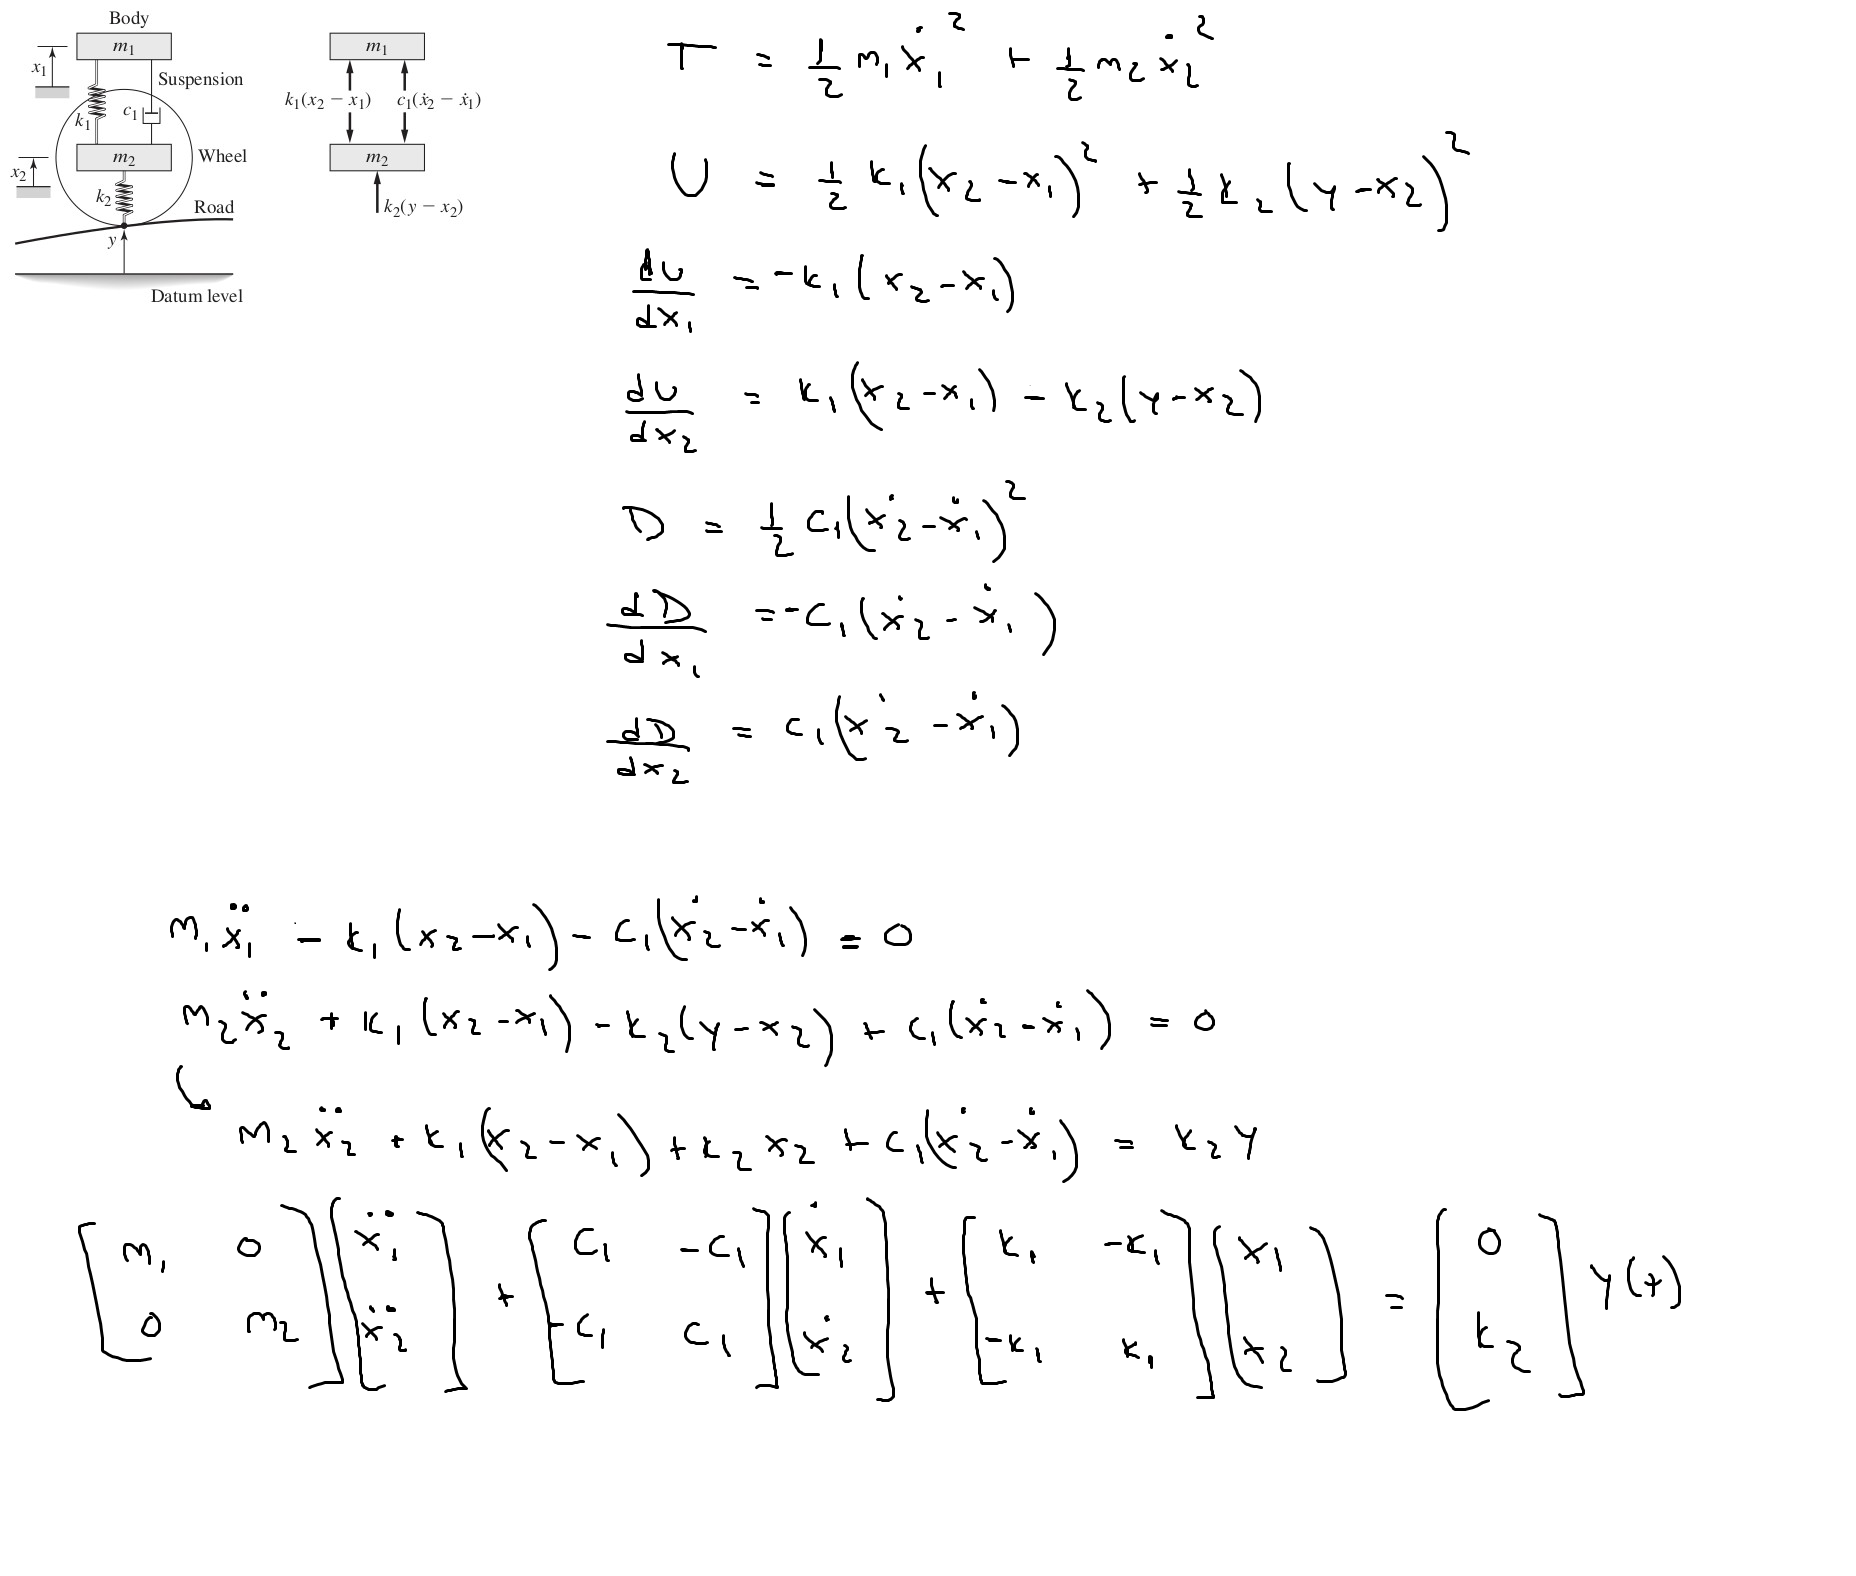 Body
m₁
x₁
Suspension
k₁
c₁
m₂
Wheel
x₂
k₂
Road
y
Datum level
m₁
k₁(x₂ − x₁) c₁(ẋ₂ − ẋ₁)
m₂
k₂(y − x₂)
T = 1/2 m₁ ẋ₁² + 1/2 m₂ ẋ₂²
U = 1/2 k₁(x₂ − x₁)² + 1/2 k₂(y − x₂)²
dU/dx₁ = −k₁(x₂ − x₁)
dU/dx₂ = k₁(x₂ − x₁) − k₂(y − x₂)
D = 1/2 c₁(ẋ₂ − ẋ₁)²
dD/dx₁ = −c₁(ẋ₂ − ẋ₁)
dD/dx₂ = c₁(ẋ₂ − ẋ₁)
m₁ẍ₁ − k₁(x₂ − x₁) − c₁(ẋ₂ − ẋ₁) = 0
m₂ẍ₂ + k₁(x₂ − x₁) − k₂(y − x₂) + c₁(ẋ₂ − ẋ₁) = 0
m₂ẍ₂ + k₁(x₂ − x₁) + k₂x₂ + c₁(ẋ₂ − ẋ₁) = k₂y
[m₁ 0][ẍ₁] + [c₁ −c₁][ẋ₁] + [k₁ −k₁][x₁] = [0] y(t)
[0 m₂][ẍ₂] [−c₁ c₁][ẋ₂] [−k₁ k₁][x₂] [k₂]